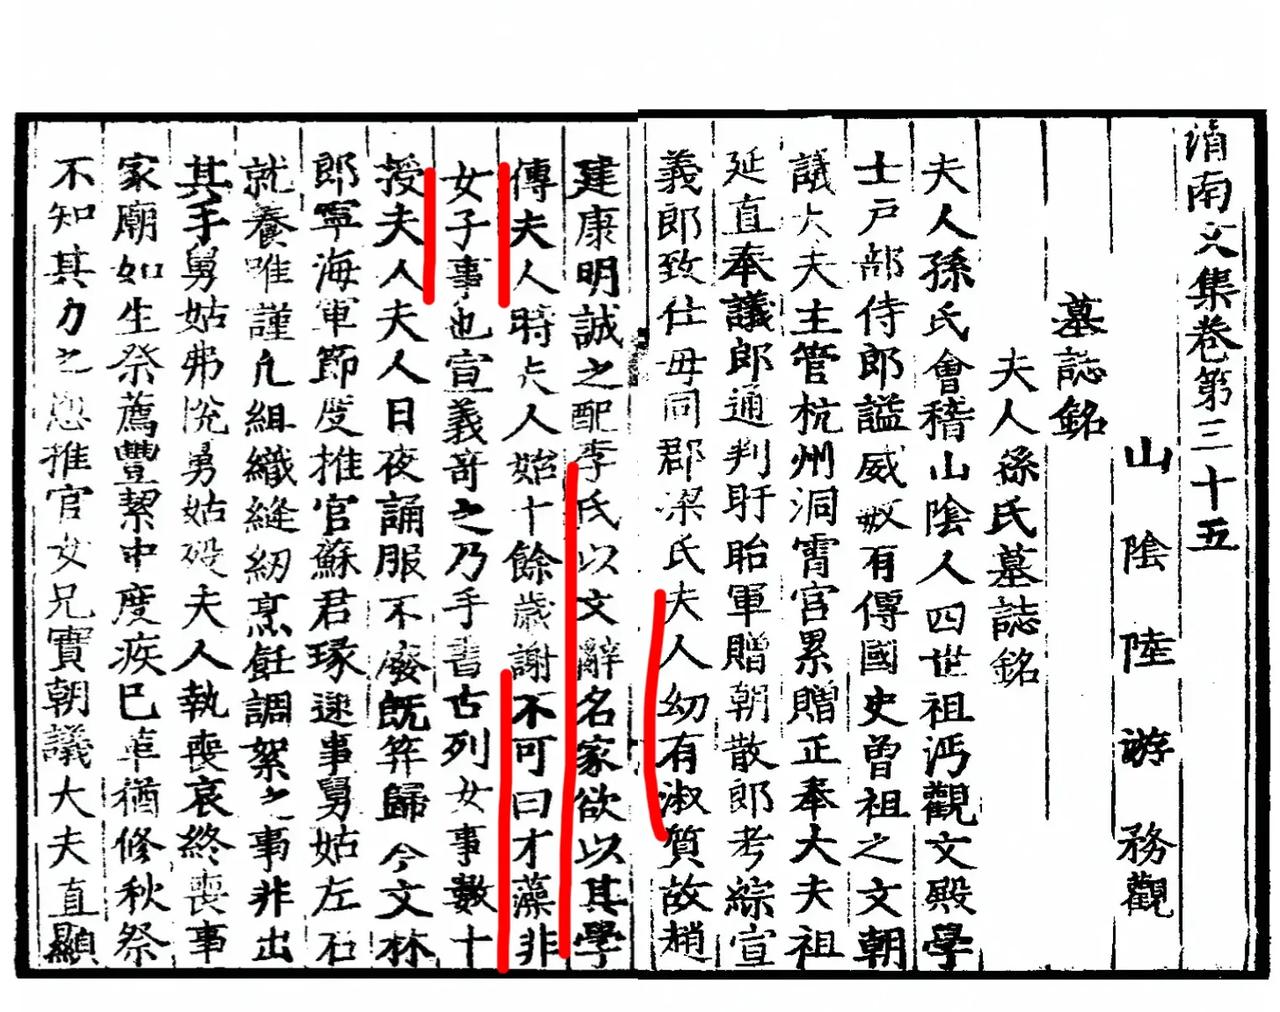 渭南文集卷第三十五
山陰陸游務觀
墓誌銘
夫人孫氏墓誌銘
夫人孫氏會稽山陰人四世祖沔觀文殿學
士戶部侍郎謚威敏有傳國史曾祖之文朝
議大夫主管杭州洞霄宮累贈正奉大夫祖
延直奉議郎通判盱眙軍贈朝散郎考綜宣
義郎致仕母同郡梁氏夫人幼有淑質故趙
建康明誠之配李氏以文辭名家欲以其學
傳夫人時夫人始十餘歲謝不可曰才藻非
女子事也宣義奇之乃手書古列女事數十
授夫人夫人日夜誦服不廢既笄歸今文林
郎寧海軍節度推官蘇君瑑逮事舅姑左右
就養唯謹凡組織縫紉烹飪調絮之事非出
其手舅姑弗悅舅姑歿夫人執喪哀終喪事
家廟如生祭薦豐絜中度疾已革猶修秋祭
不知其力之憊推官女兄寶朝議大夫直顯